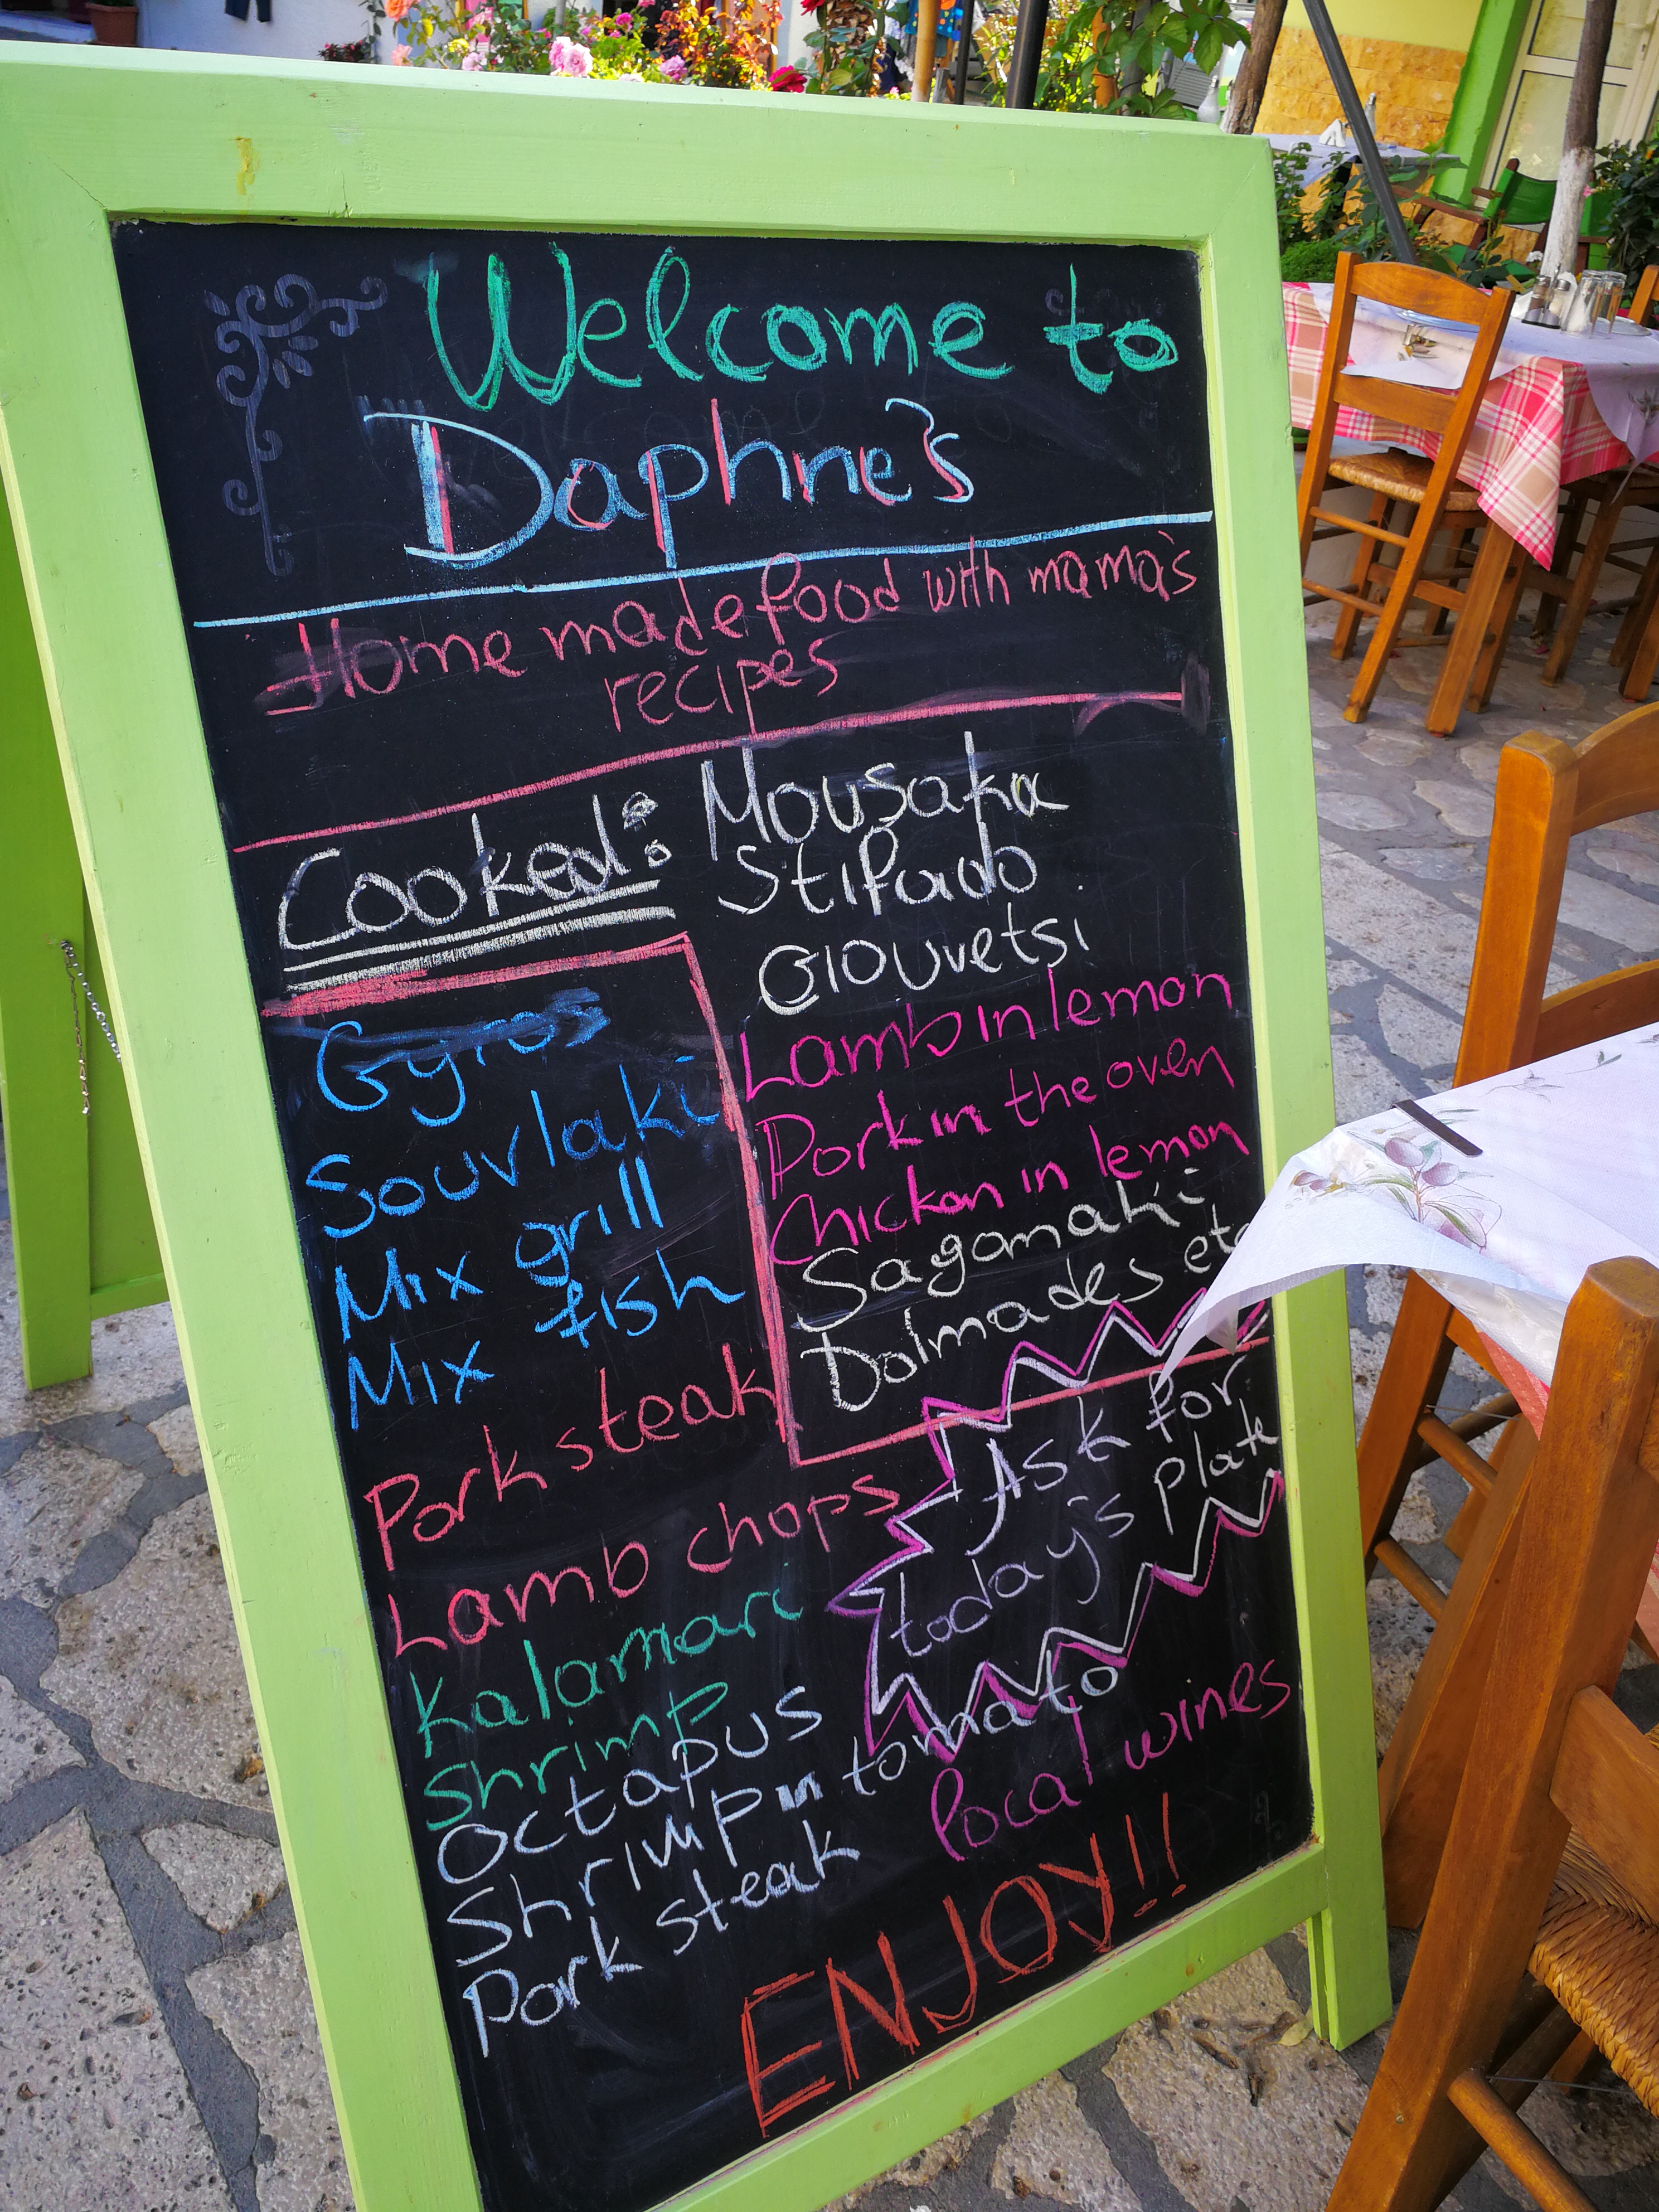 Welcome to
Daphne's
Home made food with mama's
recipes
Cooked: Mousaka
Stifado
Giouvetsi
Lamb in lemon
Pork in the oven
Chicken in lemon
Sagamaki
Dolmades etc
Gyros
Souvlaki
Mix grill
Mix fish
Pork steak
Lamb chops
Kalamari
Shrimp
Octapus
Shrimp in tomato
Pork steak
Ask for
today's plate
local wines
ENJOY!!